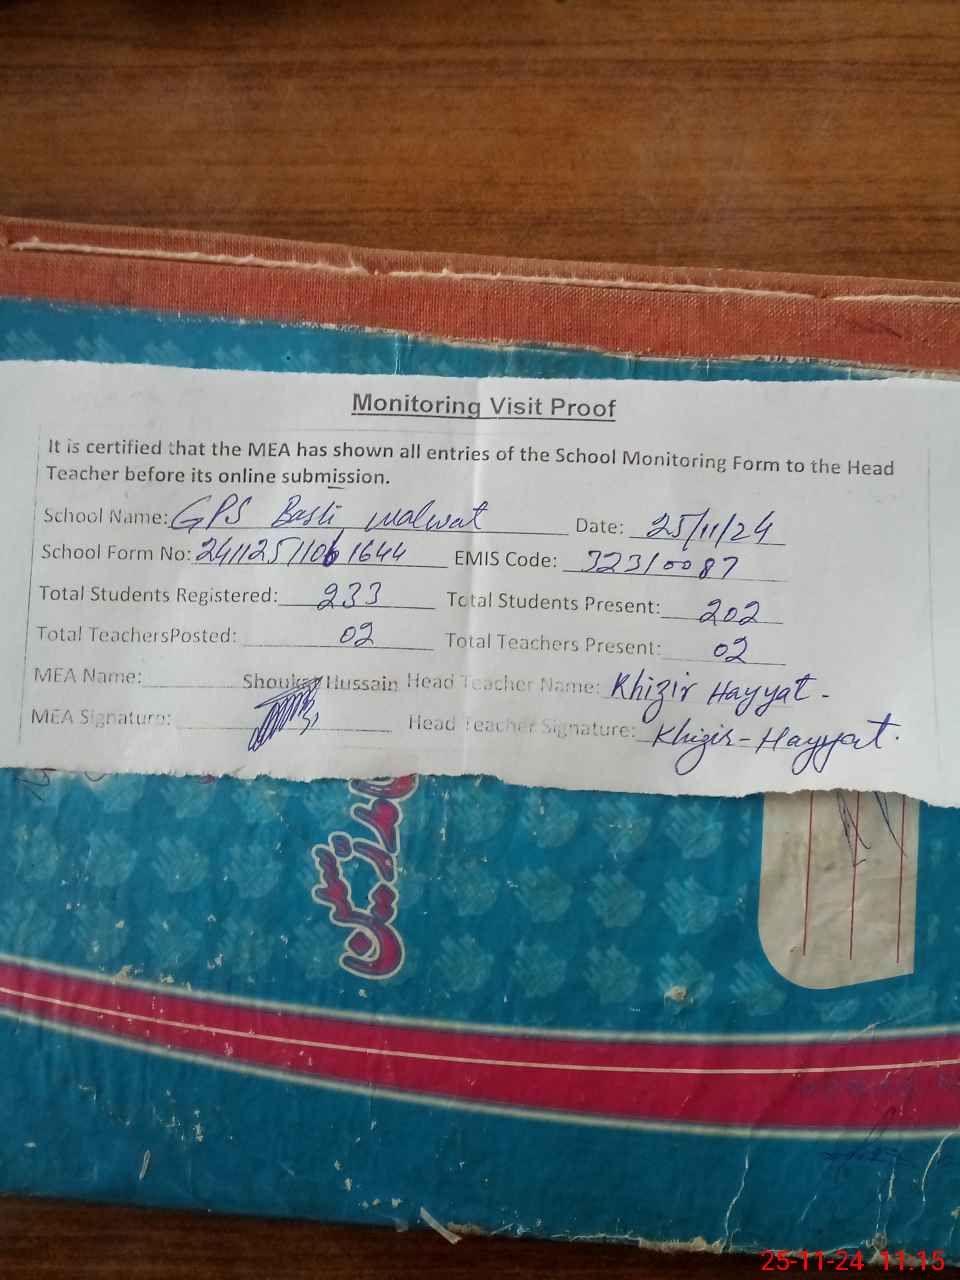 Monitoring Visit Proof
It is certified that the MEA has shown all entries of the School Monitoring Form to the Head
Teacher before its online submission.
School Name: GPS Basti Malwat Date: 25/11/24
School Form No: 24112511061644 EMIS Code: 32310087
Total Students Registered: 233 Total Students Present: 202
Total TeachersPosted: 02 Total Teachers Present: 02
MEA Name: Shoukat Hussain Head Teacher Name: Khizir Hayyat -
MEA Signature: Head Teacher Signature: Khizir-Hayyat.
25-11-24 11:15